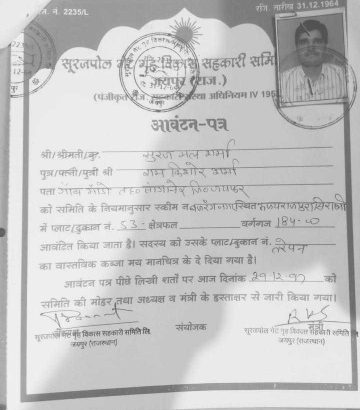 न. नं. 2235/L
रजि. तारीख 31.12.1964
सूरजपोल गेट गृह विकास सहकारी समिति
जयपुर (राज.)
(पंजीकृत राज. सहकारी संस्था अधिनियम IV 195
आवंटन-पत्र
श्री/श्रीमती/कु. सुरज मल शर्मा
पुत्र/पत्नी/पुत्री श्री राम किशोर शर्मा
पता
को समिति के नियमानुसार स्कीम न स्थित
में प्लाट/दुकान नं. 53 क्षेत्रफल वर्गगज 184-00
आवंटित किया जाता है। सदस्य को उसके प्लाट/दुकान नं.
का वास्तविक कब्जा मय मानचित्र के दे दिया गया है।
आवंटन पत्र पीछे लिखी शर्तों पर आज दिनांक 29.12.90 को
समिति की मोहर तथा अध्यक्ष व मंत्री के हस्ताक्षर से जारी किया गया।
संयोजक
मंत्री
सूरजपोल गेट गृह विकास सहकारी समिति लि.
जयपुर (राजस्थान)
सूरजपोल गेट गृह विकास सहकारी समिति लि
जयपुर (राजस्थान)